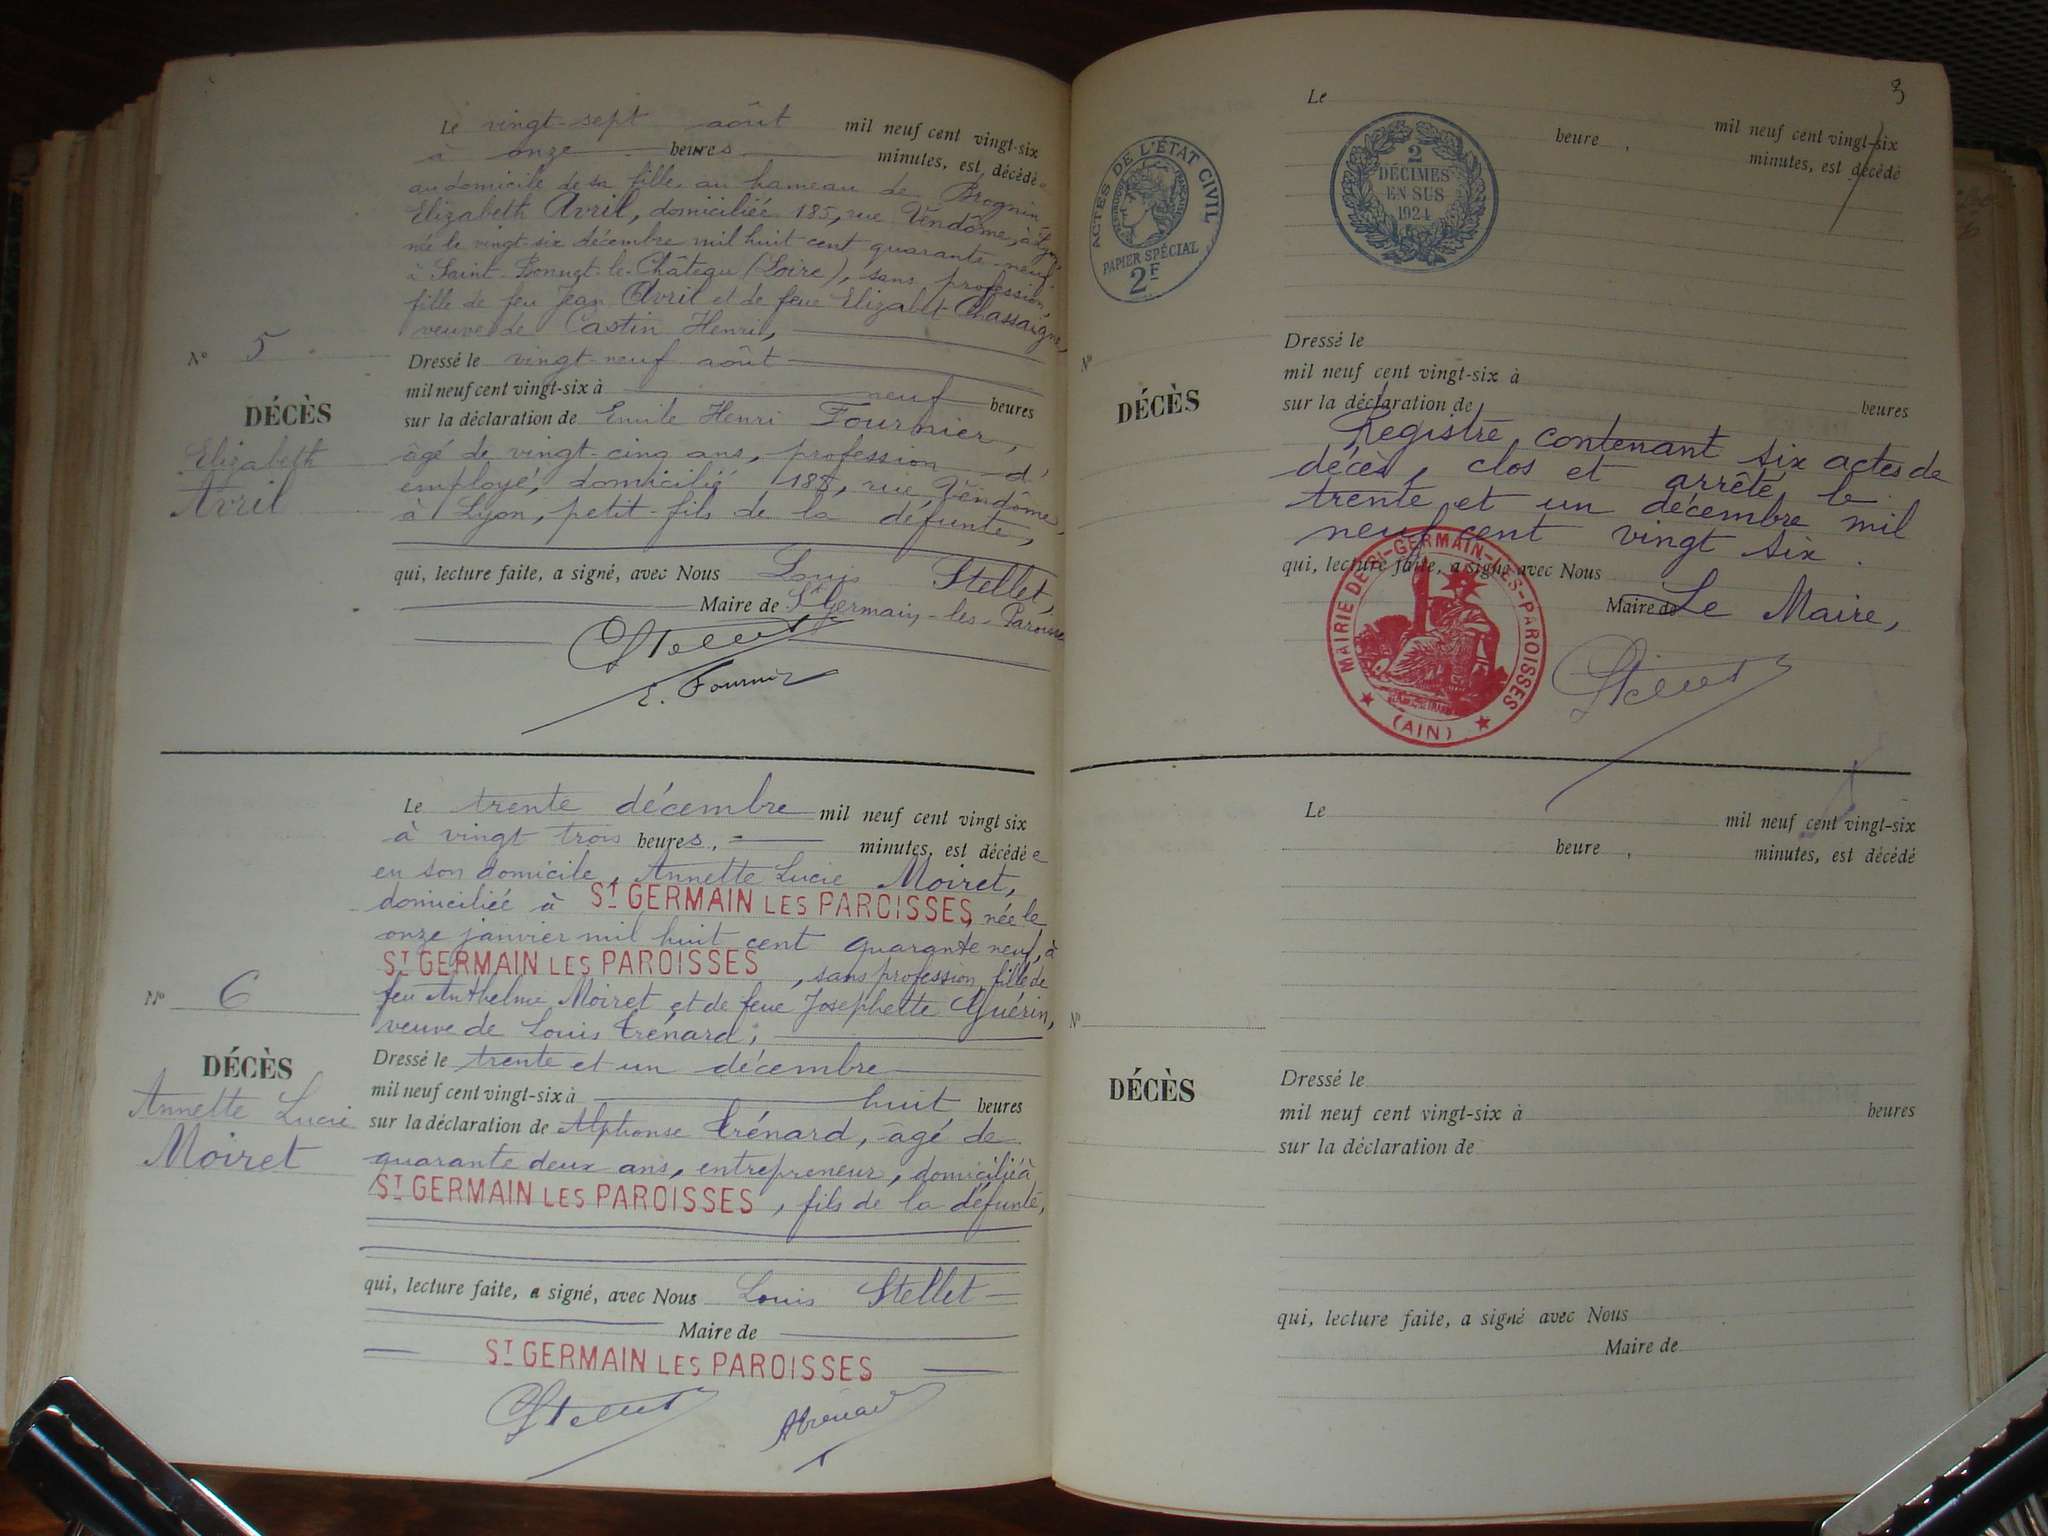 Le vingt-sept août mil neuf cent vingt-six
à onze heures minutes, est décédée
au domicile de sa fille, au hameau de Brognin,
Elizabeth Avril, domiciliée 185, rue Vendôme, à Lyon,
née le vingt-six décembre mil huit cent quarante-neuf
à Saint-Bonnet-le-Château (Loire), sans profession,
fille de feu Jean Avril et de feue Elizabet Chassaigne,
veuve de Castin Henri,
N° 5
Dressé le vingt-neuf août
mil neuf cent vingt-six à neuf heures
DÉCÈS
sur la déclaration de Emile Henri Fournier,
Elizabeth
Avril
âgé de vingt-cinq ans, profession d'
employé, domicilié 185, rue Vendôme,
à Lyon, petit-fils de la défunte,
qui, lecture faite, a signé, avec Nous Louis Stellet,
Maire de St Germain-les-Paroisses
Stellet
E. Fournier
Le trente décembre mil neuf cent vingt six
à vingt trois heures, = minutes, est décédée
en son domicile, Annette Lucie Moiret,
domiciliée à ST GERMAIN LES PAROISSES, née le
onze janvier mil huit cent quarante neuf, à
ST GERMAIN LES PAROISSES, sans profession, fille de
feu Anthelme Moiret et de feue Josephette Guérin,
veuve de Louis Trénard;
N° 6
Dressé le trente et un décembre
mil neuf cent vingt-six à huit heures
DÉCÈS
Annette Lucie
Moiret
sur la déclaration de Alphonse Trénard, âgé de
quarante deux ans, entrepreneur, domicilié à
ST GERMAIN LES PAROISSES, fils de la défunte,
qui, lecture faite, a signé, avec Nous Louis Stellet
Maire de
ST GERMAIN LES PAROISSES
Stellet
ATrénard
3
Le mil neuf cent vingt-six
heure , minutes, est décédé
ACTES DE L'ÉTAT CIVIL
RÉPUBLIQUE FRANÇAISE
PAPIER SPÉCIAL
2F
2
DÉCIMES
EN SUS
1924
N°
Dressé le
mil neuf cent vingt-six à
DÉCÈS
sur la déclaration de heures
Registre contenant six actes de
décès, clos et arrêté le
trente et un décembre mil
neuf cent vingt six.
qui, lecture faite, a signé avec Nous
Maire de Le Maire,
MAIRIE DE ST-GERMAIN-LES-PAROISSES
(AIN)
Stellet
Le mil neuf cent vingt-six
heure , minutes, est décédé
N°
DÉCÈS
Dressé le
mil neuf cent vingt-six à heures
sur la déclaration de
qui, lecture faite, a signé avec Nous
Maire de